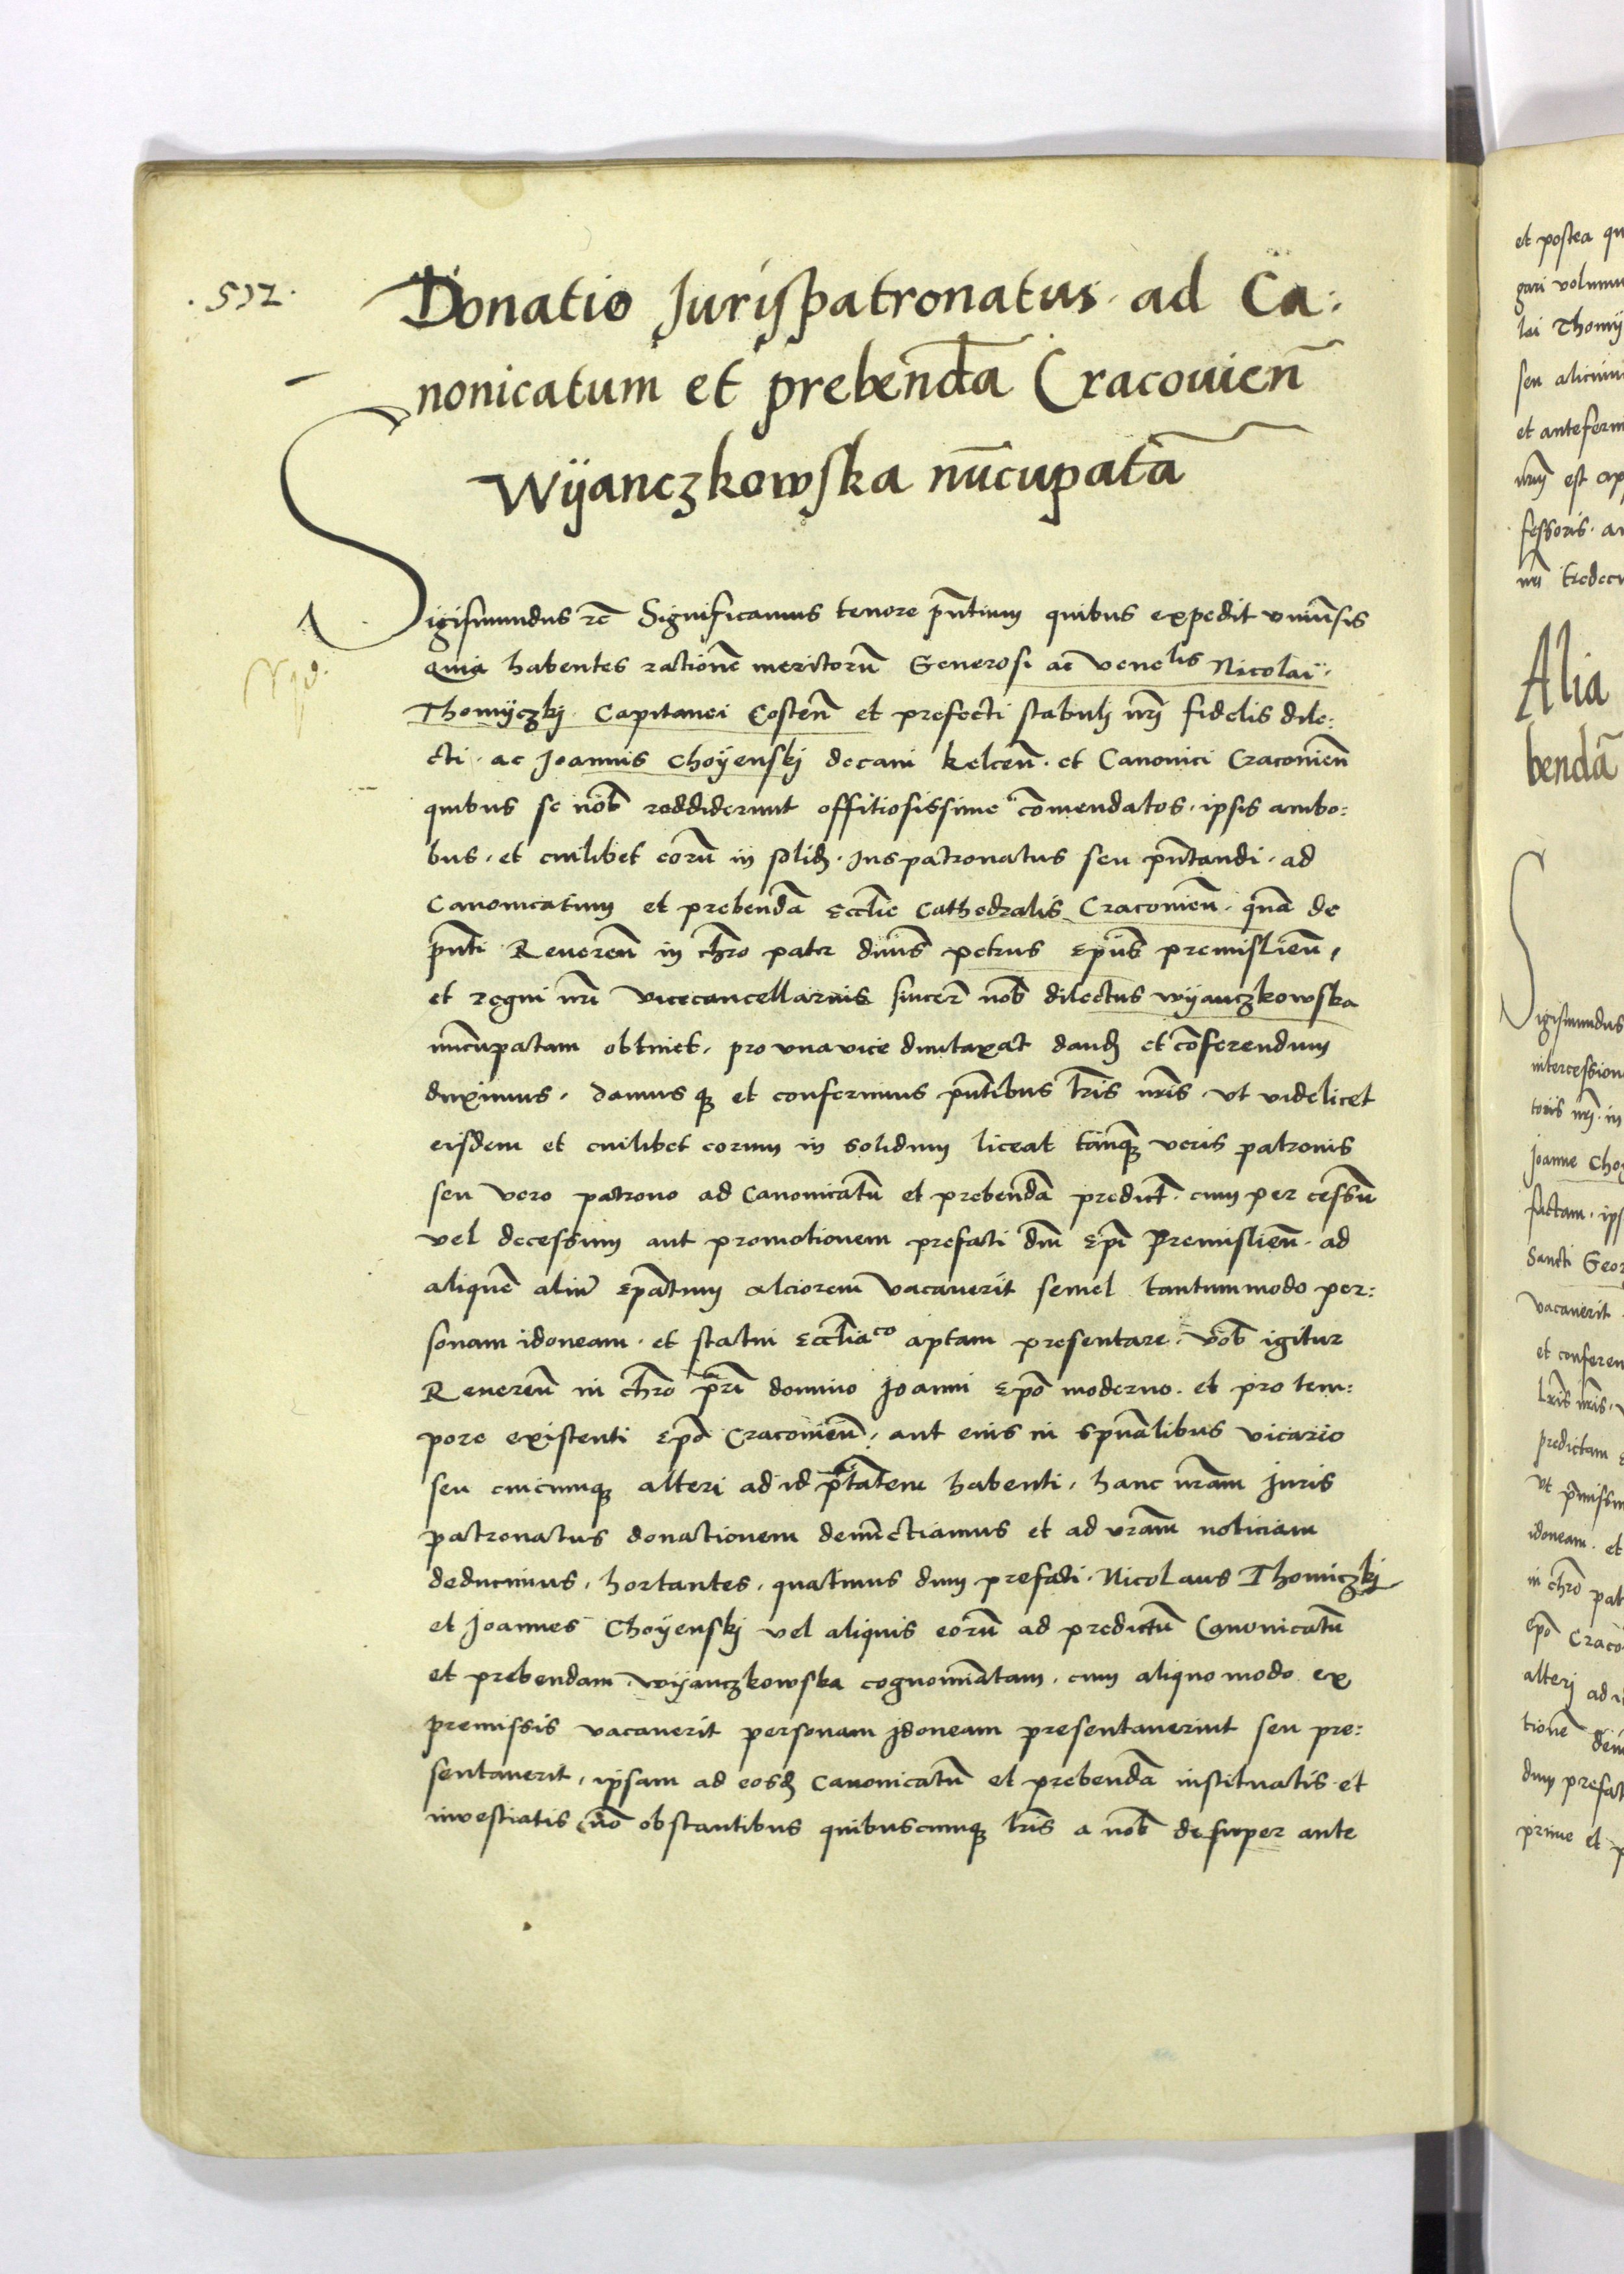 . 532 .
Donatio Jurispatronatus · ad Ca:
nonicatum et prebendā Cracouień
Wÿanczkowska nūcupatā
Sigismundus rc̄ Significamus tenore p̄ntium quibus expedit vniūsis
Quia habentes rationē meritorū Generosi ac venelis Nicolai
Thomÿczkj Capitanei Costeń et prefecti stabulj nrj̄ fidelis dile:
cti · ac Joannis Choÿenskj decani kelceń · et Canonici Cracouień
quibus se nob̄ reddiderunt offitiosissime cōmendatos · ipsis ambo:
bus · et cuilibet eorū in solidū · Juspatronatus seu p̄ntandi · ad
Canonicatum et prebendā Eccłie Cathedralis Cracouień · quā de
p̄nti Reuereń in chr̄o pater dn̄us petrus Ep̄us premislień,
et regni nrī vicecancellarius sincer̄ nob̄ dilectus wÿanczkowska
nuncupatam obtinet · pro vna vice duntaxat dandū et cōferendum
duximus · damus qꝫ et conferimus p̄ntibus lr̄is nr̄is · vt videlicet
eisdem et cuilibet eorum in solidum liceat tanqꝫ veris patronis
seu vero patrono ad Canonicatū et prebendā predict̄ · cum per cessū
vel decessum aut promotionem prefati dn̄i Ep̄i Premislień · ad
aliquē aliū Ep̄atum alciorem vacauerit semel tantummodo per:
sonam idoneam · et statui Eccłiaco aptam presentare · Vob̄ igitur
Reuereń in chr̄o pr̄i domino Joanni Ep̄o moderno · et pro tem:
pore existenti Ep̄o Cracouień · aut eius in sp̄ualibus vicario
seu cuicumqꝫ alteri ad id p̄tatem habenti · hanc nr̄am Juris
patronatus donationem denunctiamus et ad vr̄am noticiam
deducimus · hortantes · quatinus dum prefati · Nicolaus Thomiczkj
et Joannes Choÿenskj vel aliquis eorū ad predictū Canonicatū
et prebendam wÿanczkowska cognominatam · cum aliquo modo ex
premissis vacauerit personam Jdoneam presentauerint seu pre:
sentauerit, ipsam ad eosdē Canonicatū et prebendā instituatis et
inuestiatis nō obstantibus quibuscumqꝫ lr̄is a nob̄ desuper ante
et postea qu
gari volumu
lai Thomÿ
seu alicuius
et anteferm
nrm̄ est ap
fessoris · au
nrī tredec
Alia
bendā
Sigismundus
intercession
toris nrj̄ · in
Joanne Choÿ
factam · ips
Sancti Geor
vacauerit ·
et conferen
lr̄is nr̄is ·
predictam
vt p̄missu
idoneam · et
in chr̄o pat
Ep̄o Craco
alterj ad i
tionē denu
dum prefat
prime et p